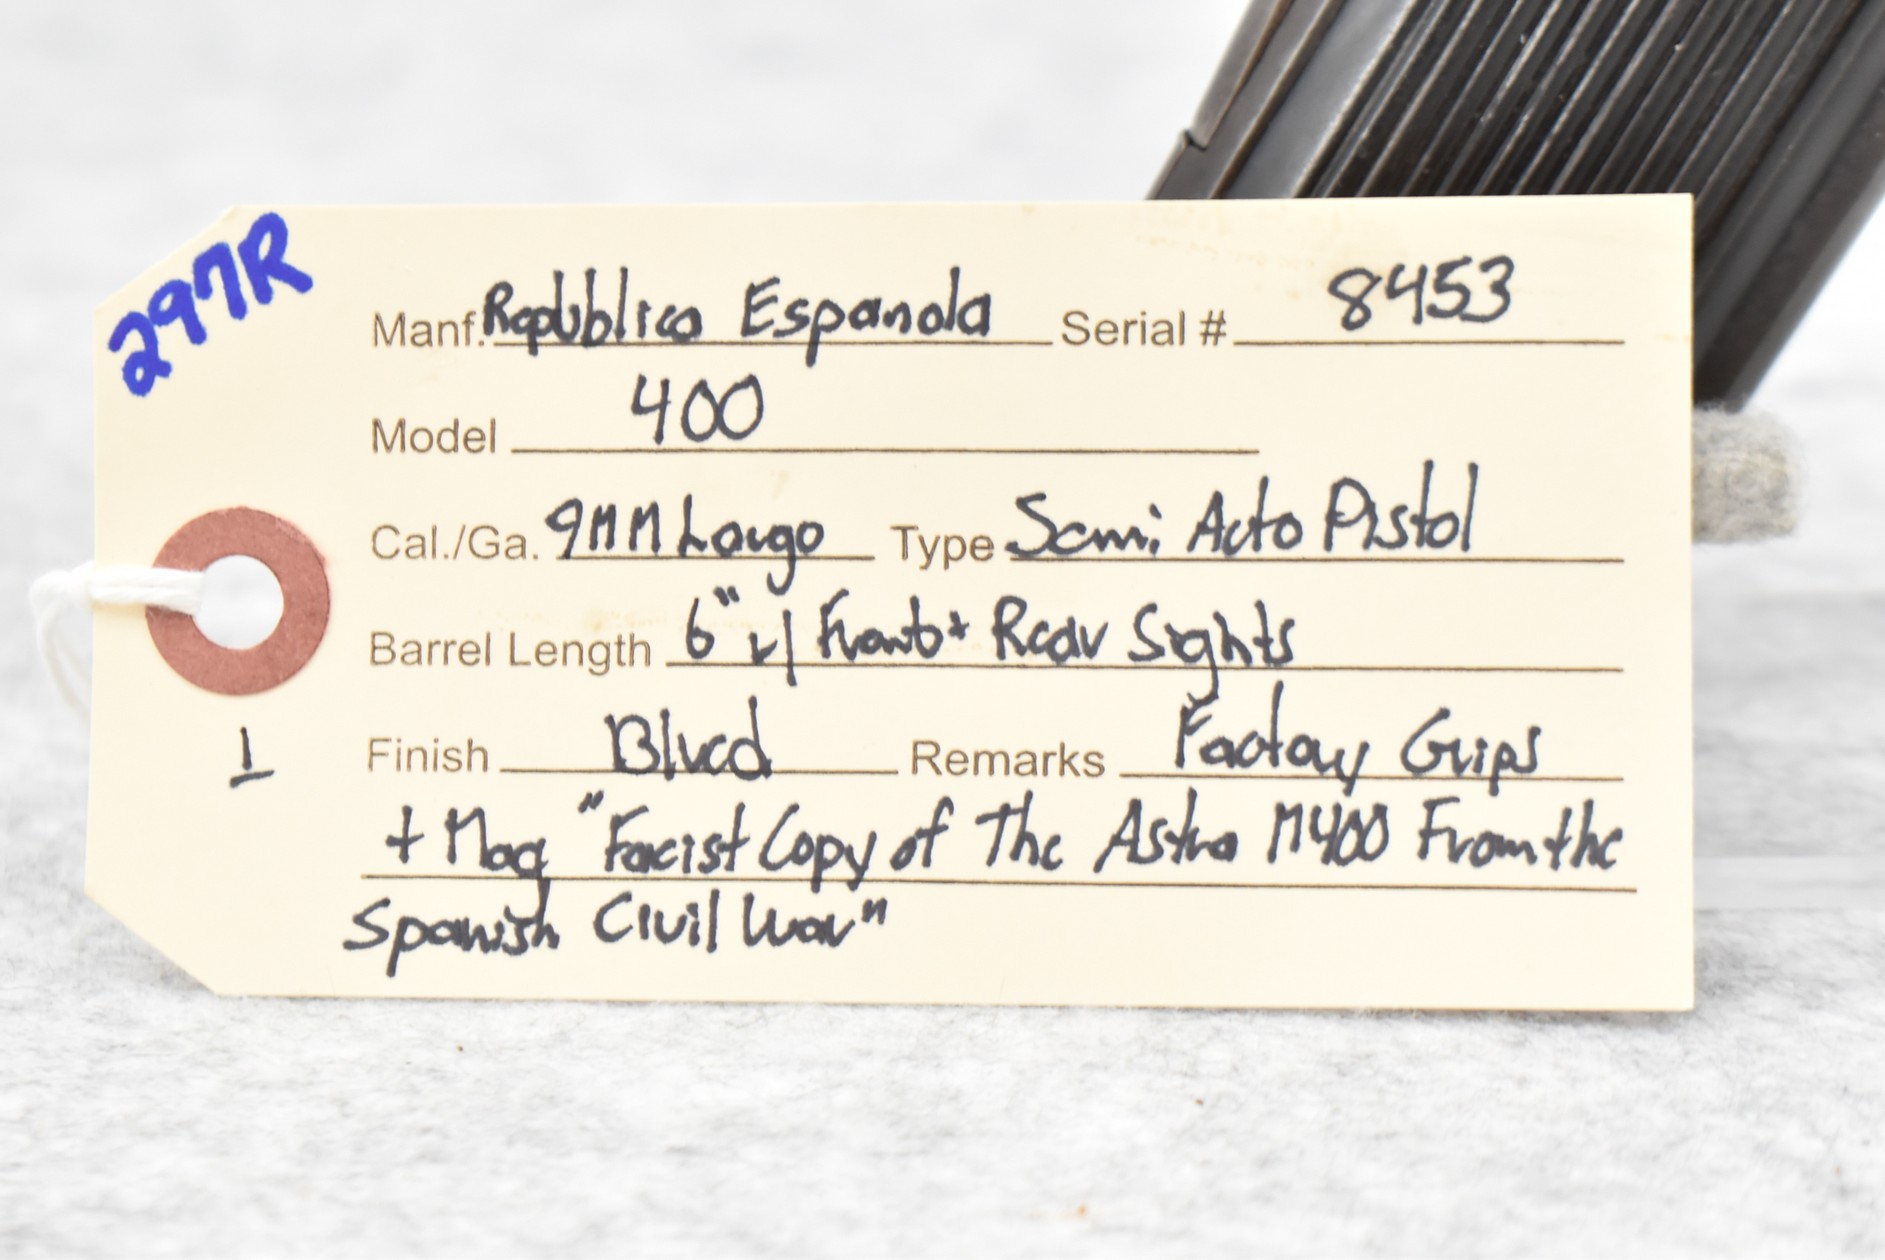 297R
Manf. Republica Espanola Serial # 8453
Model 400
Cal./Ga. 9MM Largo Type Semi Auto Pistol
Barrel Length 6" w/ Front + Rear Sights
1
Finish Blued Remarks Factory Grips
+ Mag "Facist Copy of The Astra M400 From the
Spanish Civil War"